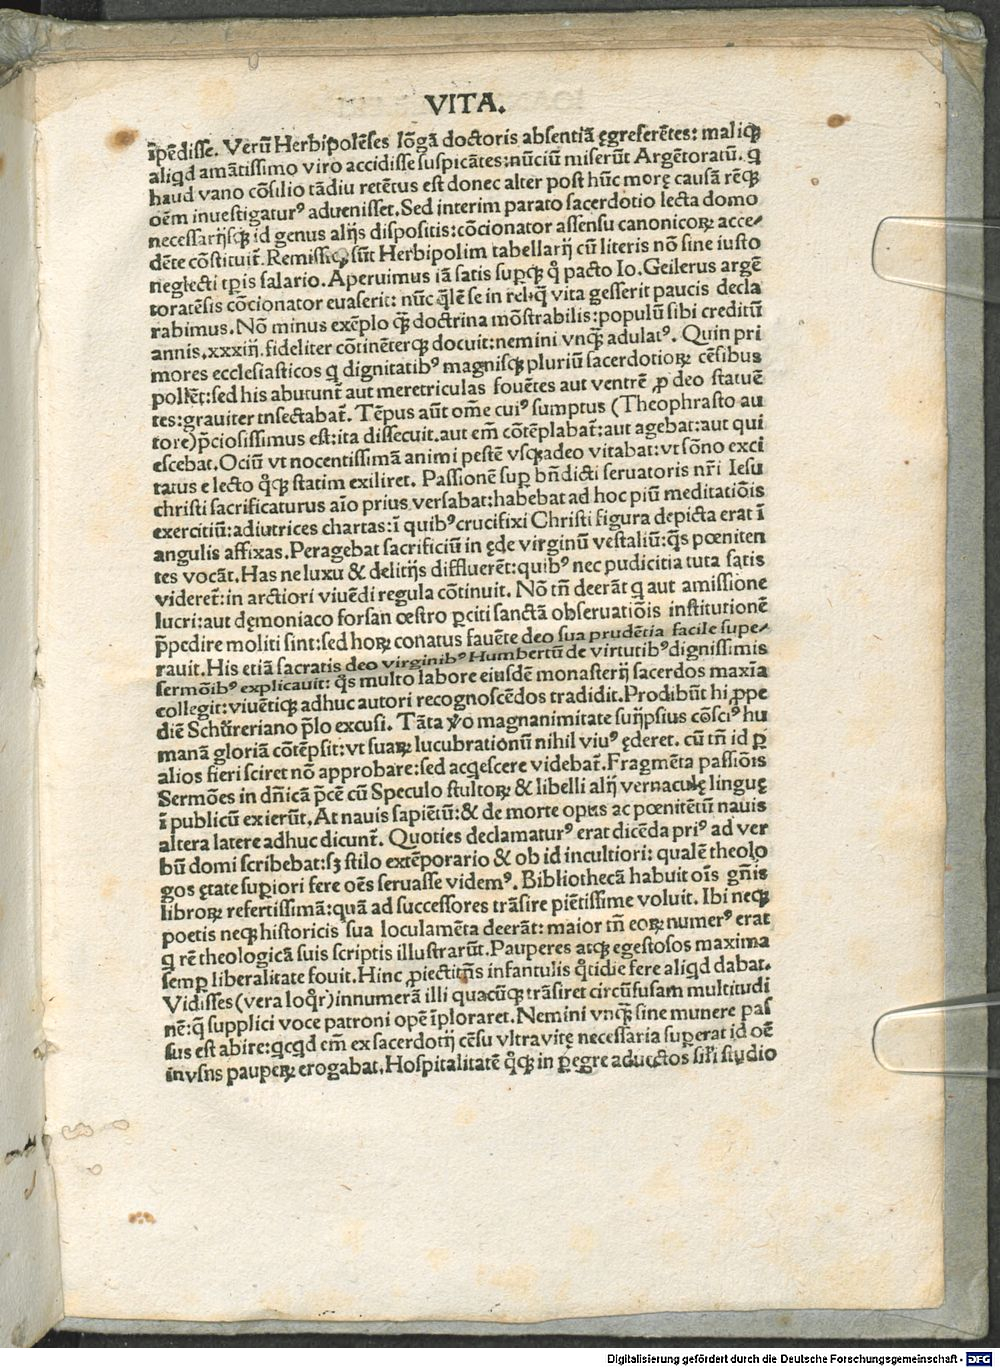 VITA.
īpēdisse. Verū Herbipolēses lōgā doctoris absentiā ęgreferētes: maliqꝫ
aliqd amātissimo viro accidisse suspicātes: nūciū miserūt Argētoratū. q
haud vano cōsilio tādiu retētus est donec alter post hūc morę causā rēqꝫ
oēm inuestigaturꝰ aduenisset. Sed interim parato sacerdotio lecta domo
necessarijsqꝫ id genus alijs dispositis: cōcionator assensu canonicoꝝ acce⸗
dēte cōstituit᷑. Remissiqꝫ sūt Herbipolim tabellarij cū literis nō sine iusto
neglecti tꝑis salario. Aperuimus iā satis suꝑqꝫ qͦ pacto Io. Geilerus argē
toratēsis cōcionator euaserit: nūc qͣlē se in reliqͣ vita gesserit paucis decla
rabimus. Nō minus exēplo qͣꝫ doctrina mōstrabilis: populū sibi creditū
annis .xxxiij. fideliter cōtinēterqꝫ docuit: nemini vnqͣꝫ adulatꝰ. Quin pri
mores ecclesiasticos q dignitatibꝰ magnisqꝫ pluriū sacerdotioꝝ cēsibus
pollēt: sed his abutunt᷑ aut meretriculas fouētes aut ventrē ꝓ deo statuē
tes: grauiter insectabat᷑. Tēpus aūt om̄e cuiꝰ sumptus (Theophrasto au
tore) p̄ciosissimus est: ita dissecuit. aut em̄ cōtēplabat᷑: aut agebat: aut qui
escebat. Ociū vt nocentissimā animi pestē vsqꝫadeo vitabat: vt sōno exci
tatus e lecto qͦqꝫ statim exiliret. Passionē suꝑ bn̄dicti seruatoris nr̄i Iesu
christi sacrificaturus aīo prius versabat: habebat ad hoc piū meditatiōis
exercitiū: adiutrices chartas: ī quibꝰ crucifixi Christi figura depicta erat ī
angulis affixas. Peragebat sacrificiū in ęde virginū vestaliū: qͣs pœniten
tes vocāt. Has ne luxu & delitijs diffluerēt: quibꝰ nec pudicitia tuta satis
videret᷑: in arctiori viuēdi regula cōtinuit. Nō tn̄ deerāt q aut amissione
lucri: aut dęmoniaco forsan œstro ꝑciti sanctā obseruatiōis institutionē
p̄pedire moliti sint: sed hoꝝ conatus fauēte deo sua prudētia facile supe⸗
rauit. His etiā sacratis deo virginibꝰ Humbertū de virtutibꝰ dignissimis
sermōibꝰ explicauit: qͦs multo labore eiusdē monasterij sacerdos maxīa
collegit: viuētiqꝫ adhuc autori recognoscēdos tradidit. Prodibūt hi ꝓpe
diē Schūreriano p̄lo excusi. Tāta ꝟo magnanimitate suijpsius cōsciꝰ hu
manā gloriā cōtēpsit: vt suaꝝ lucubrationū nihil viuꝰ ęderet. cū tn̄ id ꝑ
alios fieri sciret nō approbare: sed acqescere videbat᷑. Fragmēta passiōis
Sermōes in dn̄icā p̄cē cū Speculo stultoꝝ & libelli alij vernaculę linguę
ī publicū exierūt, At nauis sapiētū: & de morte opus ac pœnitētū nauis
altera latere adhuc dicunt᷑. Quoties declamaturꝰ erat dicēda priꝰ ad ver
bū domi scribebat: sꝫ stilo extēporario & ob id incultiori: qualē theolo
gos ętate suꝑiori fere oēs seruasse videmꝰ. Bibliothecā habuit oīs gn̄is
libroꝝ refertissimā: quā ad successores trāsire piētissime voluit. Ibi neqꝫ
poetis neqꝫ historicis sua loculamēta deerāt: maior tn̄ eoꝝ numerꝰ erat
q rē theologicā suis scriptis illustrarūt. Pauperes atqꝫ egestosos maxima
semꝑ liberalitate fouit. Hinc ꝓiectitijs infantulis qͦtidie fere aliqd dabat.
Vidisses (vera loqͦr) innumerā illi quacūqꝫ trāsiret circūfusam multitudi
nē: qͣ supplici voce patroni opē īploraret. Nemini vnqͣꝫ sine munere pas
sus est abire: qcqd em̄ ex sacerdotij cēsu vltra vitę necessaria suꝑerat id oē
in vsus pauꝑeꝝ erogabat, Hospitalitatē qͦqꝫ in ꝑegre aduectos sil̄i studio
Digitalisierung gefördert durch die Deutsche Forschungsgemeinschaft - DFG